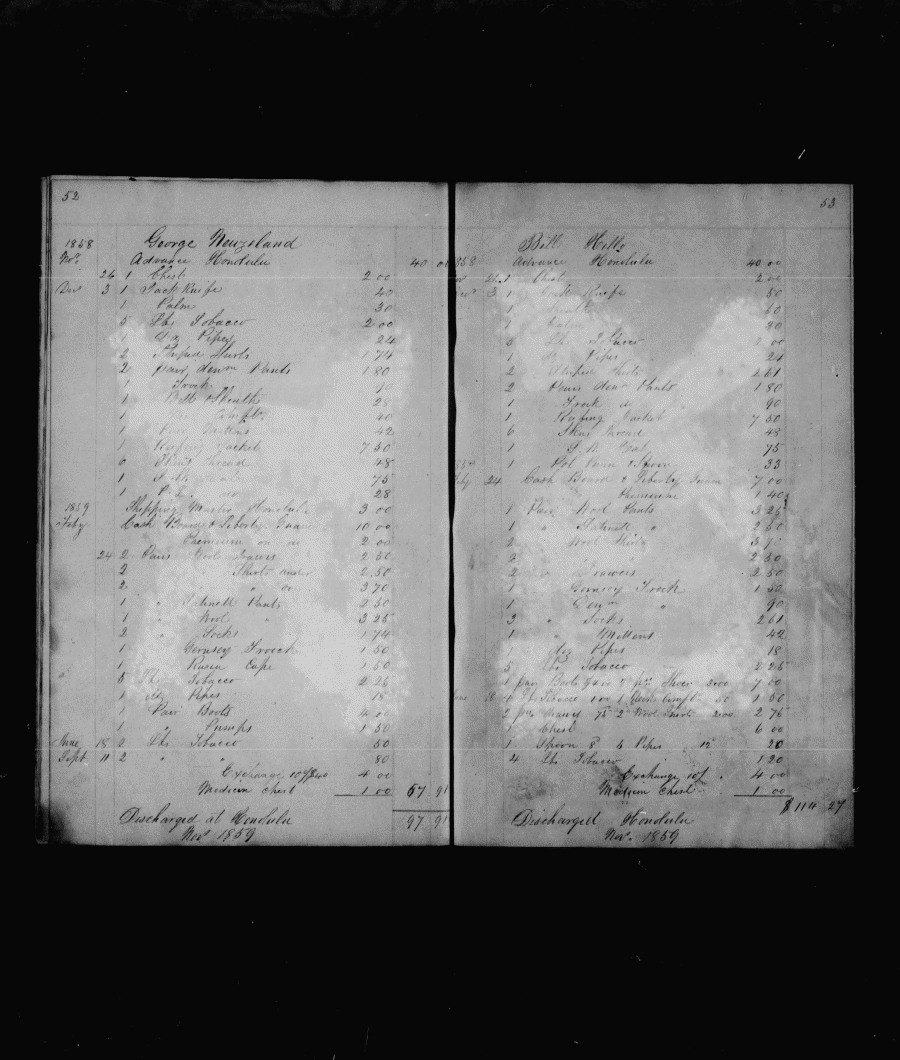 52
1858 George Newzeland
Nov. Advance Honolulu 40 00
26 1 Chest 2 00
Decr 3 1 Jack Knife 40
1 Palm 30
5 Lbs Tobacco 2 00
1 Doz Pipes 24
2 Striped Shirts 1 74
2 Pair Denm Pants 1 80
1 Frock 90
1 Belt & Sheath 28
1 40
1 Pair Mittens 42
1 Reefing Jacket 7 50
6 Skins Thread 48
1 75
1 28
1859 Shipping Master Honolulu 3 00
Feby Cash Board & Liberty Guam 10 00
Premium on do 2 00
24 2 Pairs Wool Drawers 2 50
2 " Shirts under 2,50
2 " " 3 70
1 " Satinett Pants 2 50
1 " Wool " 3 25
2 " Socks 1 74
1 Gernsey Frock 1 50
1 Cape 1 50
5 Lbs Tobacco 2 25
1 doz Pipes 18
1 Pair Boots 4 0
1 " Pumps 1 50
June 18 2 Lbs Tobacco 80
Sept 11 2 " " 80
Exchange 10% $40 4 00
Medicin Chest 1 00 57 91
Discharged at Honolulu 97 91
Nov 1859
53
Bill Hilo
1858 Advance Honolulu 40 00
26 1 Chest 2 00
3 1 Jack Knife 50
1
1 Palm 30
5 Lbs Tobacco 2 00
1 dz Pipes 24
2 Striped Shirts 2 61
2 Pairs denm Pants 1 80
1 Frock do 90
1 Reefing Jacket 7 50
6 Skins Thread 48
1 75
1 Pot Pan & Spoon 33
Feby 24 Cash Board & Liberty Guam 7 00
Premium 1 40
1 Pair Wool Pants 3 25
1 " Satinett " 2 50
2 " Wool Shirts
2 " 2 50
2 " Drawers 2 50
1 Gernsey Frock 1 50
1 " 90
3 " Socks 2 61
1 " Mittens 42
1 doz Pipes 18
5 Lbs Tobacco 2 25
1 pair Boots 2 prs Shoes 7 00
4 Lbs Tobacco 1 00 1 50
2 prs Drawers 75 2 Wool Shirts 2 00 2 75
1 Chest 6 00
1 Spoon 8 6 Pipes 12 20
4 Lbs Tobacco 1 20
Exchange 10% 4 00
Medicin Chest 1 00
$ 114 27
Discharged Honolulu
Nov. 1859